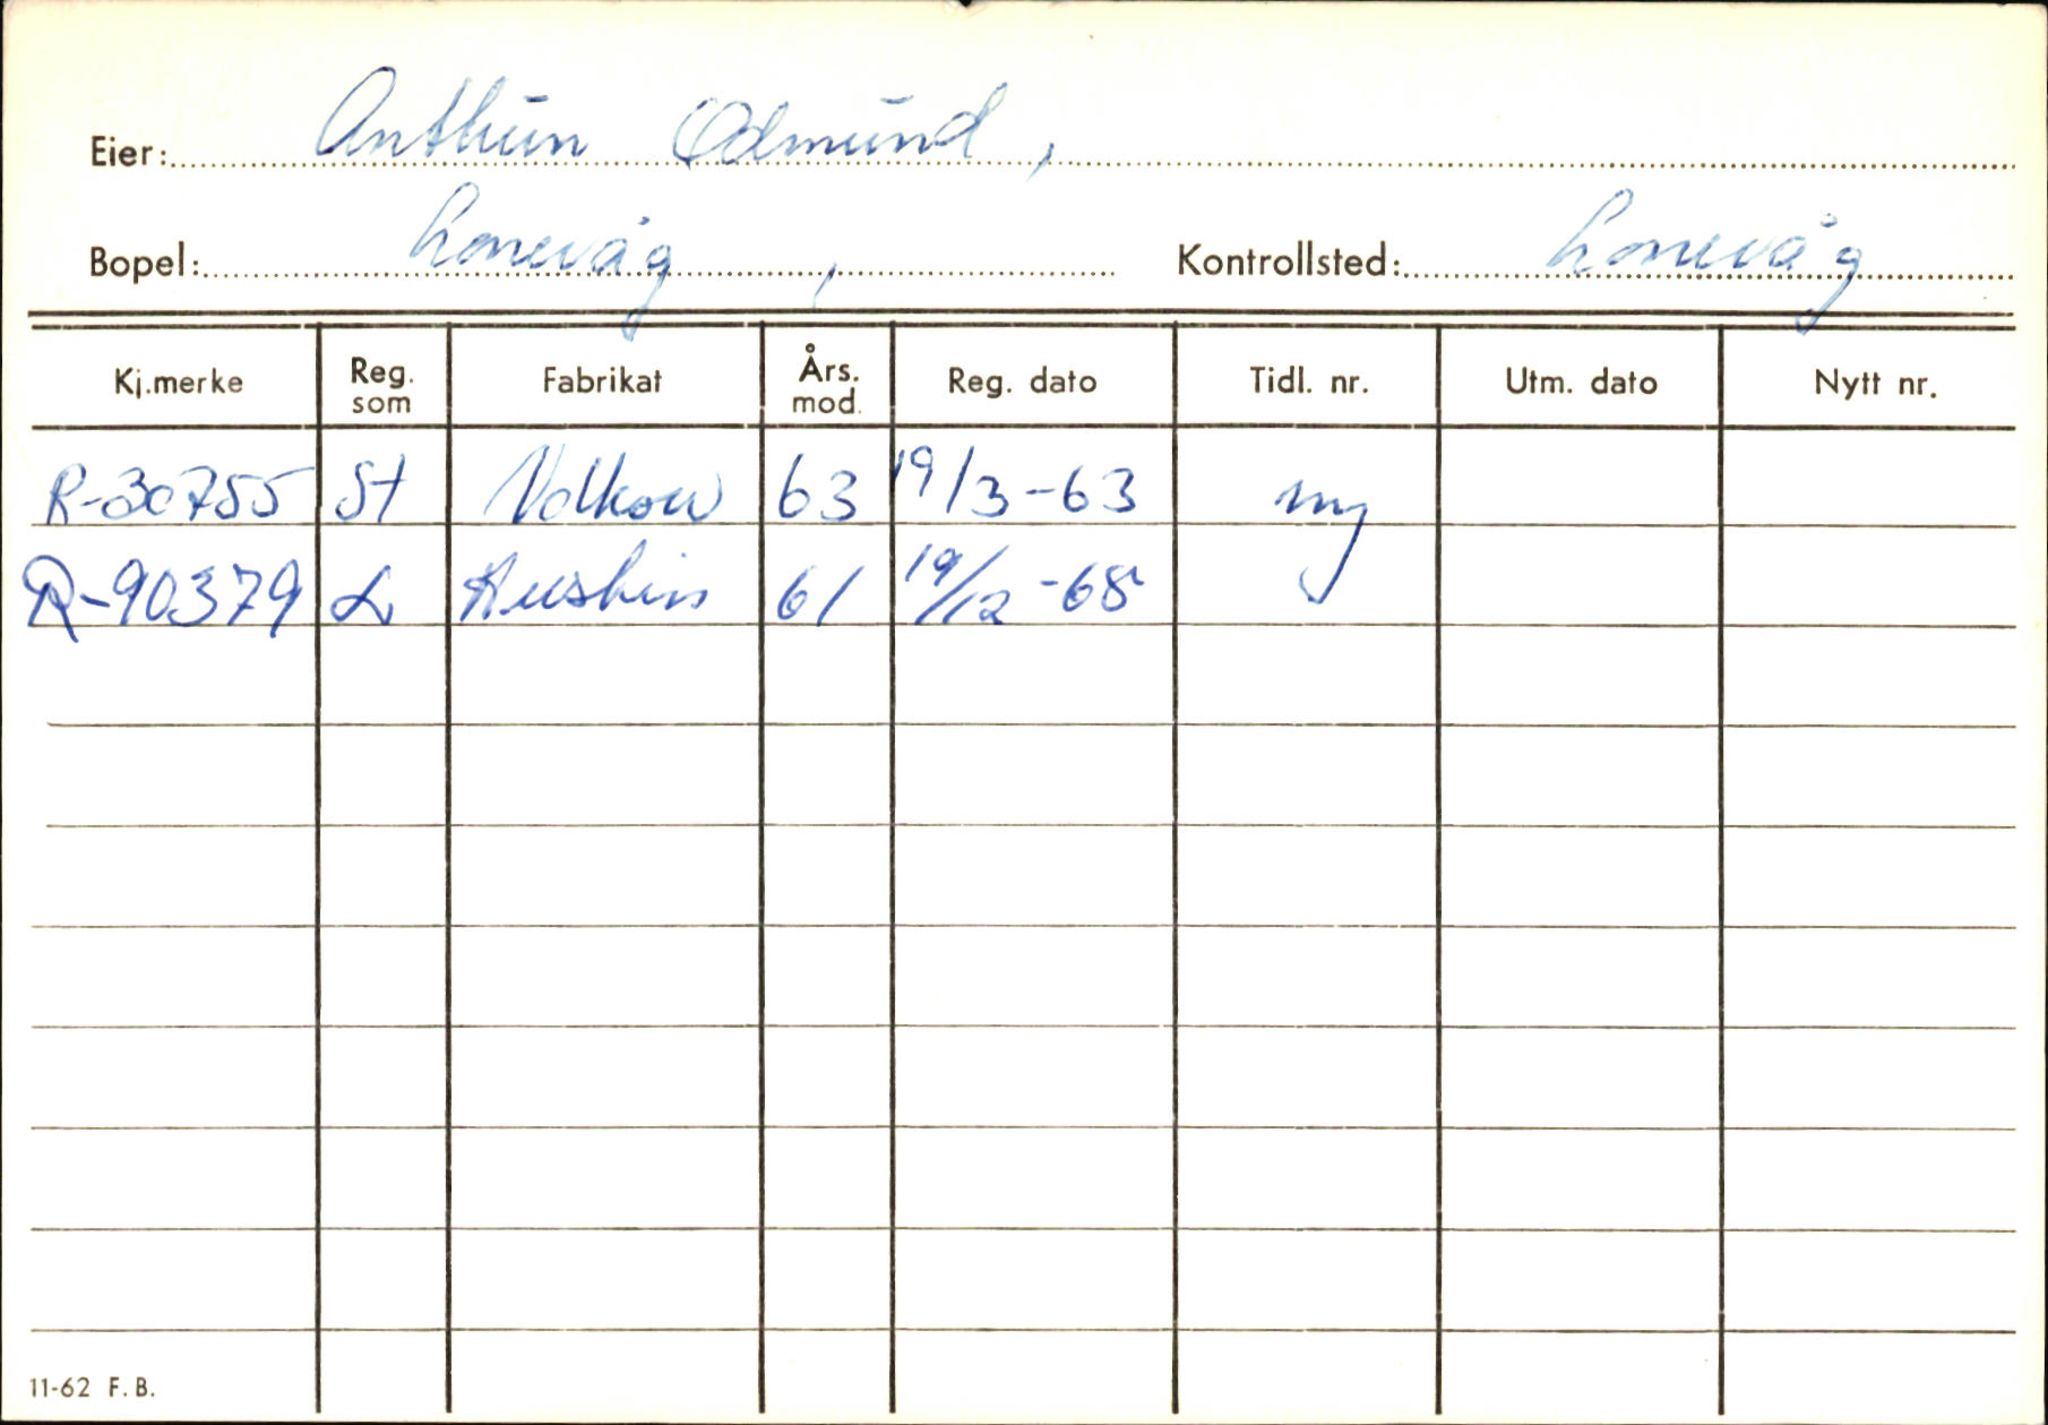 Eier: Anthun Odmund,
Bopel: Lonevåg, Kontrollsted: Lonevåg
Kj.merke Reg. som Fabrikat Års. mod. Reg. dato Tidl. nr. Utm. dato Nytt nr.
R-30755 St Volksw 63 19/3-63 ny
R-90379 L 61 19/12-68
11-62 F.B.